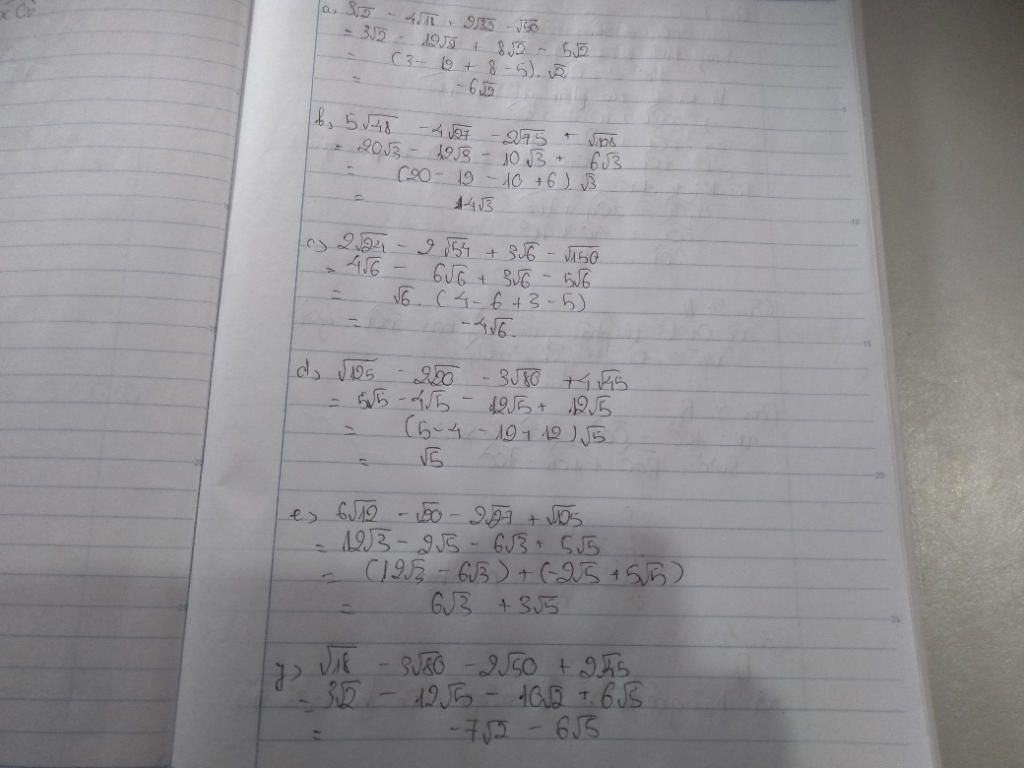 a, 3√2 - 4√18 + 2√32 - √50
= 3√2 - 12√2 + 8√2 - 5√2
= (3 - 12 + 8 - 5).√2
= -6√2
b, 5√48 - 4√27 - 2√75 + √108
= 20√3 - 12√3 - 10√3 + 6√3
= (20 - 12 - 10 + 6) √3
= 4√3
c, 2√24 - 2√54 + 3√6 - √150
= 4√6 - 6√6 + 3√6 - 5√6
= √6 . (4 - 6 + 3 - 5)
= -4√6.
d, √125 - 2√20 - 3√80 + 4√45
= 5√5 - 4√5 - 12√5 + 12√5
= (5 - 4 - 12 + 12)√5
= √5
e, 6√12 - √20 - 2√27 + √125
= 12√3 - 2√5 - 6√3 + 5√5
= (12√3 - 6√3) + (-2√5 + 5√5)
= 6√3 + 3√5
√18 - 3√80 - 2√50 + 2√45
= 3√2 - 12√5 - 10√2 + 6√5
= -7√2 - 6√5